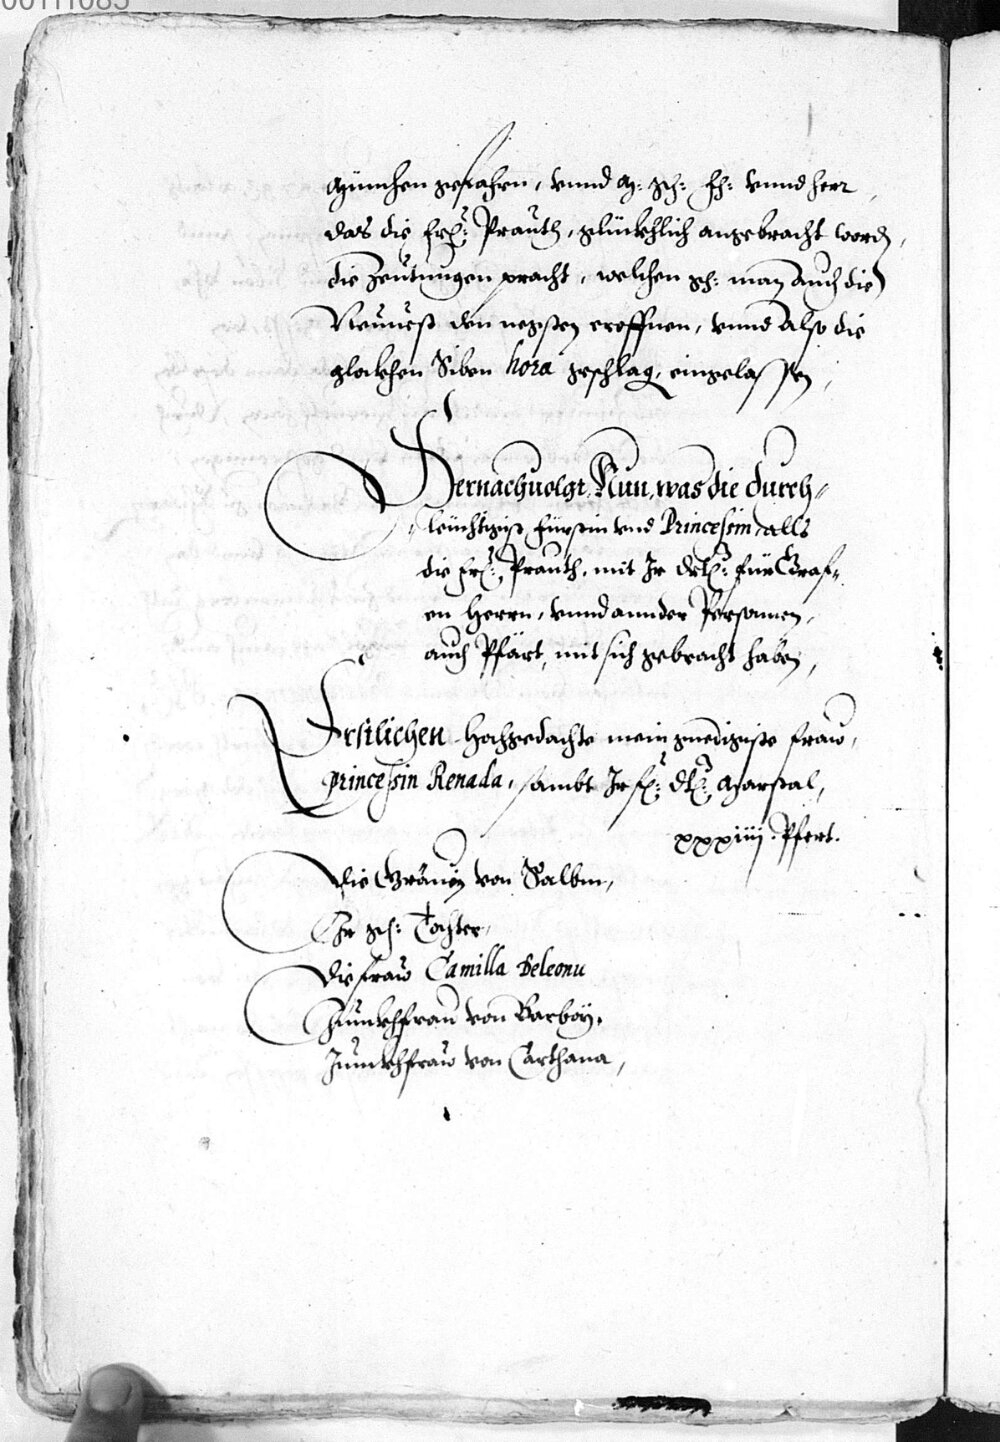 München gefahren, vnnd g: gh: fh: vnnd herr
das die frl: Prauth, glückhlich angebracht word,
die Zeutungen pracht, welchen gh: man auch die
Neuuest den negsten eroffnen, vnnd also die
glockhen Siben hora geschlag, eingelassen,
Hernachuolgt Nun, was die durch-
leüchtigist Fürstin vnd Princessin, alls
die frl: Prauth, mit Ir drl: für Graf-
en Herrn, vnnd annder Personnen,
auch Pfärt, mit sich gebracht haben,
Erstlichen Hochgedachte mein gnedigiste fraw,
princessin Renada, sambt Ir fl: Dl: Marstal,
xxxiiij. Pfert.
Die Gräuin von Salbm,
Ir gh: Tochter,
Die fraw Camilla Deleonu
Junckhfrau von Barboÿ.
Junckhfraw von Carthana,